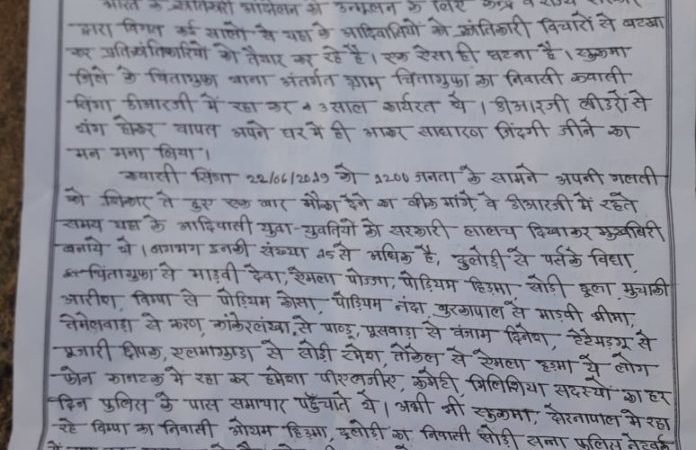 भारत के क्रांतिकारी आंदोलन को उन्मूलन के लिए केन्द्र व राज्य सरकार
द्वारा विगत कई सालों से यहां के आदिवासियों को क्रांतिकारी विचारों से भटका
कर प्रतिक्रांतिकारियों को तैयार कर रहे है। एक ऐसा ही घटना है। सुकमा
जिले के चिंतागुफा थाना अंतर्गत ग्राम चिंतागुफा का निवासी कवासी
सिंगा डीआरजी में रहा कर 3 साल कार्यरत थे। डीआरजी लीडरों से
तंग होकर वापत अपने घर मे ही आकर साधारण जिंदगी जीने का
मन मना लिया।
कवासी सिंगा 22/06/2019 को 1200 जनता के सामने अपनी गलती
को स्विकार ते हुए एक बार मौका देने का भीक मांगे, वे डीआरजी में रहते
समय यहां के आदिवासी युवा-युवतियों को सरकारी लालच दिखाकर मुखबिरी
बनाये थे। लगभग उनकी संख्या 15 से अधिक है, दुलोड़ी से पर्तके विद्या,
चिंतागुफा से माड़वी देवा, रेमला पोज्जा, पोड़ियम हिड़मा, सोड़ी दूला, मुचाकी
आरीश, विम्पा से पोड़ियम कोसा, पोड़ियम नंदा, बुरकापाल से माड़वी भीमा,
तेमेलवाड़ा से करण, कांकेरलंखा, से पाण्डू, पूसवाड़ा से वंजाम दिनेश, से
पूजारी दीपक, एलमागुण्डा से सोड़ी रमेश, तोकेल से रेमला हड़मा ये लोग
फोन कानटक में रहा कर हमेशा पीएलजीए, कमेटी, मिलिशिया सदस्यों का हर
दिन पुलिस के पास समाचार पहुँचाते थे। अभी भी सुकमा, दोरनापाल मे रहा
रहे विम्पा का निवासी ओयम हिड़मा, दुलोड़ी का निवासी सोड़ी सन्ना पुलिस नेटवर्क